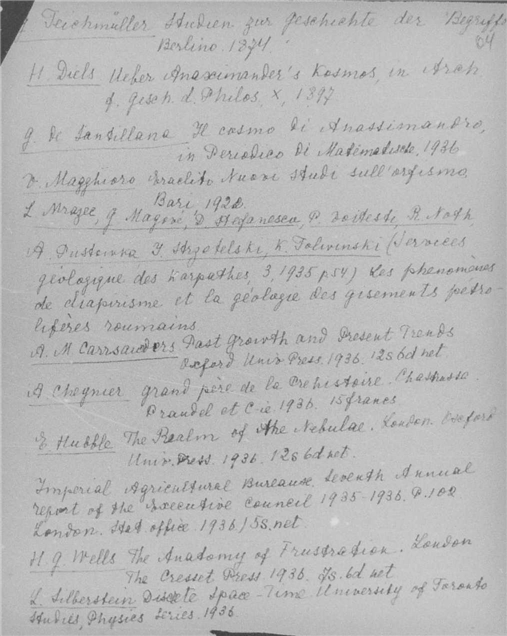 Teichmüller Studien zur Geschichte der Begriffe
Berlino. 1874
04
H. Diels Ueber Anaximander's Kosmos, in Arch
f. Gesch. d. Philos, X, 1897
G. de Santillana Il cosmo di Anassimandro,
in Periodico di Matematische, 1936
V. Magghioro Eraclito Nuovi studi sull'orfismo
Bari
L. Mrazec, G. D. Stefanescu, R. Noth
A. K. Tolwinski (Services
géologique des Karpathes, 3, 1935 p54) Les phenomènes
de diapirisme et la géologie des gisements petro-
lifères roumains
A. M. Carrsaunders Past Growth and Present Trends
Oxford Univ. Press. 1936. 12s 6d net
A Chegnier grand père de la Préhistoire.
et Cie. 1936. 15 francs
E Hubble The Realm of the Nebulae. London. Oxford
Univ. Press. 1936. 12s 6d net.
Imperial Agricultural Bureaux. Seventh Annual
report of the Executive Council 1935-1936. P. 102
London. Stat office. 1936 / 5s. net
H. G. Wells The Anatomy of Frustration. London
The Cresset Press. 1936. 7s. 6d net
L. Silberstein Discrete Space-Time University of Toronto
Studies, Physics Series. 1936